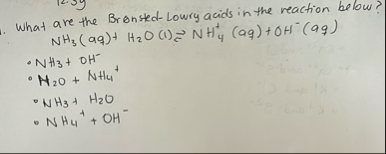 1. What are the Brønsted-Lowry acids in the reaction below?
NH₃(aq) + H₂O (l) ⇌ NH₄⁺ (aq) + OH⁻ (aq)
• NH₃ + OH⁻
• H₂O + NH₄⁺
• NH₃ + H₂O
• NH₄⁺ + OH⁻